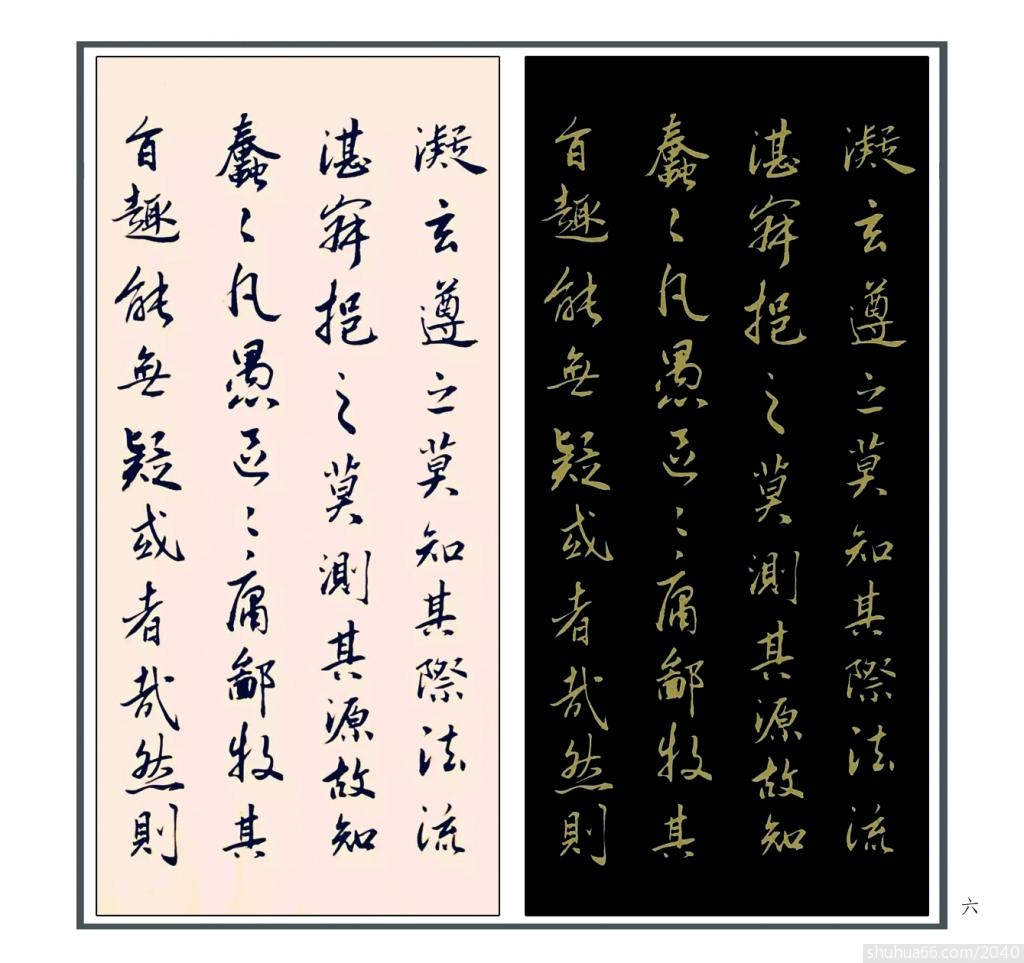 凝玄遵之莫知其際法流
湛寂挹之莫測其源故知
蠢〻凡愚區〻庸鄙投其
旨趣能無疑或者哉然則
凝玄遵之莫知其際法流
湛寂挹之莫測其源故知
蠢〻凡愚區〻庸鄙投其
旨趣能無疑或者哉然則
六
shuhua66.com/2040